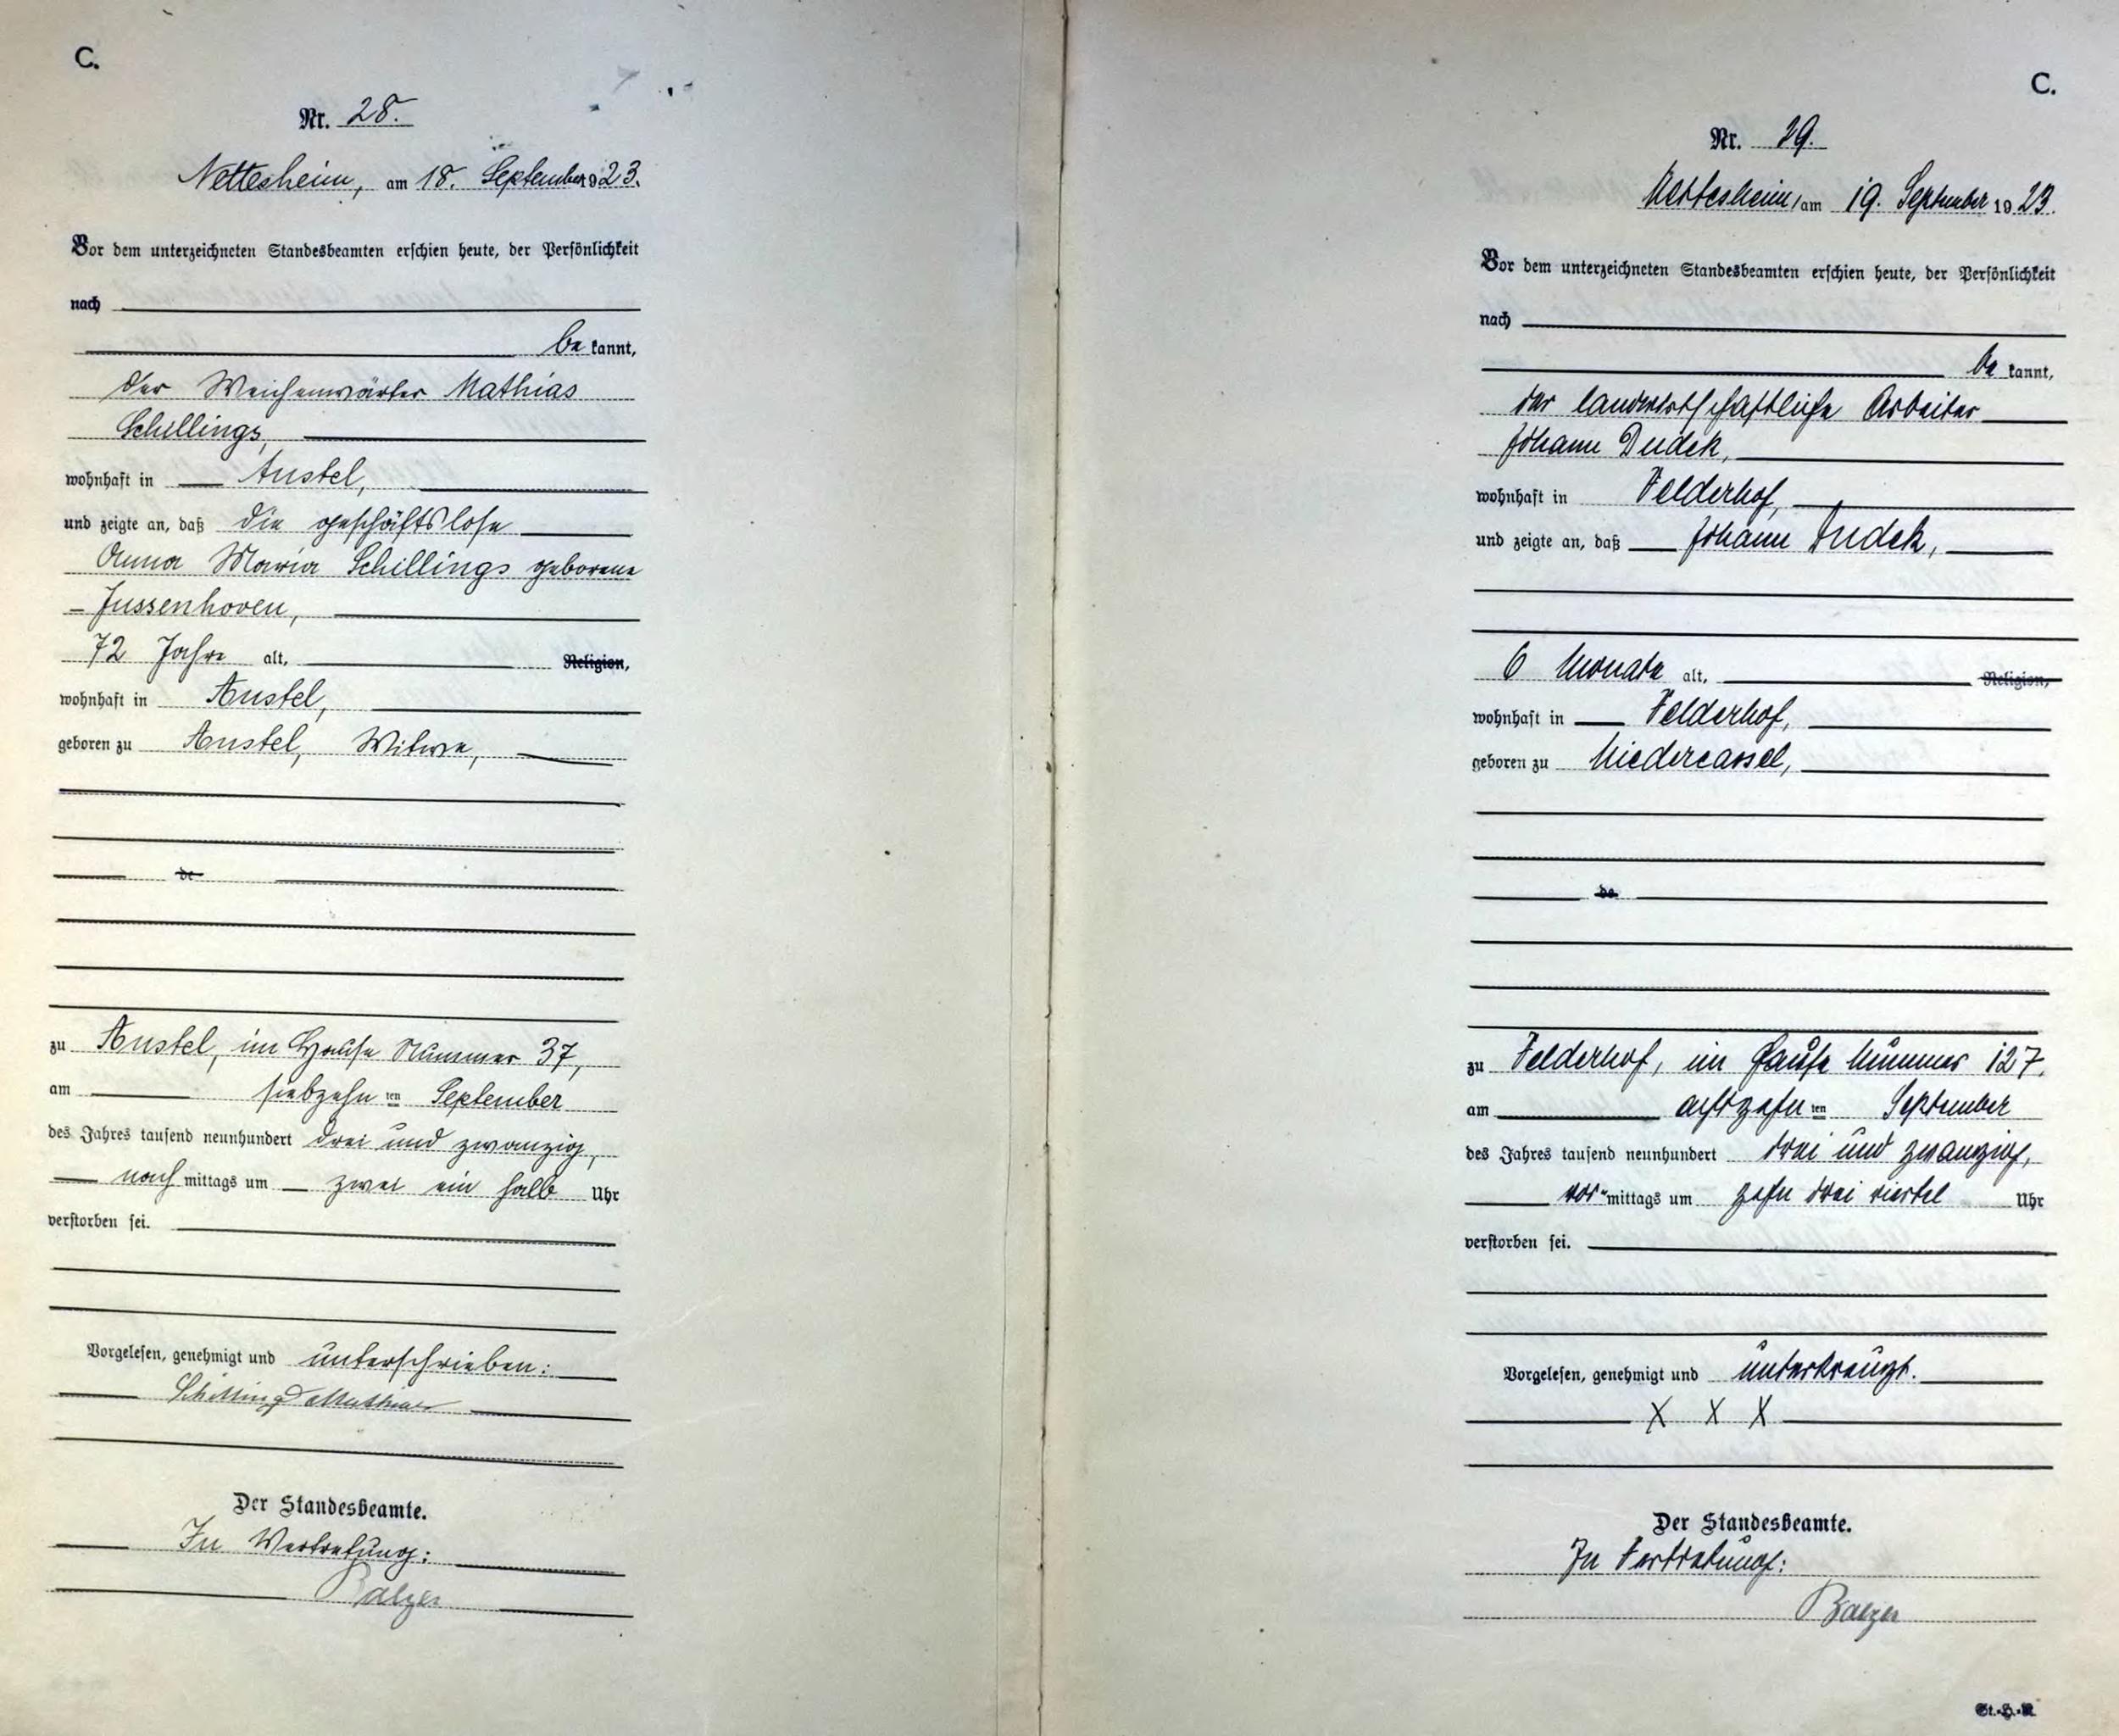 C.
Nr. 28.
Nettesheim, am 18. September 1923.
Vor dem unterzeichneten Standesbeamten erschien heute, der Persönlichkeit
nach
be kannt,
der Weichenwärter Mathias
Schillings,
wohnhaft in Anstel,
und zeigte an, daß die geschäftslose
Anna Maria Schillings geborene
Jussenhoven,
72 Jahre alt, Religion,
wohnhaft in Anstel,
geboren zu Anstel, Witwe,
de
zu Anstel, im Hause Nummer 37,
am siebzehn ten September
des Jahres tausend neunhundert drei und zwanzig,
nach mittags um zwei ein halb Uhr
verstorben sei.
Vorgelesen, genehmigt und unterschrieben:
Schillings Mathias
Der Standesbeamte.
In Vertretung:
Balzer
C.
Nr. 29.
Nettesheim, am 19. September 1923.
Vor dem unterzeichneten Standesbeamten erschien heute, der Persönlichkeit
nach
be kannt,
der landwirtschaftliche Arbeiter
Johann Dudek,
wohnhaft in Velderhof,
und zeigte an, daß Johann Dudek,
6 Monate alt, Religion,
wohnhaft in Velderhof,
geboren zu Niedercassel,
de
zu Velderhof, im Hause Nummer 127,
am achtzehn ten September
des Jahres tausend neunhundert drei und zwanzig,
vor mittags um zehn drei viertel Uhr
verstorben sei.
Vorgelesen, genehmigt und unterkreuzt.
X X X
Der Standesbeamte.
In Vertretung:
Balzer
St.-H.-R.